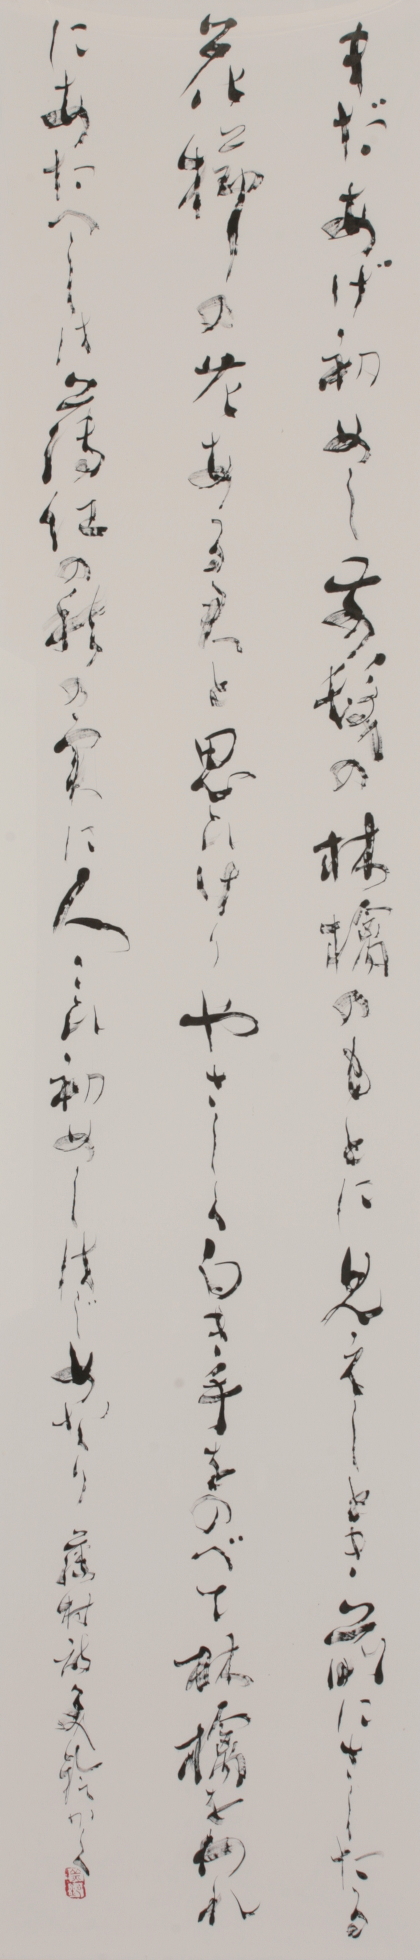 まだあげ初めし前髪の林檎のもとに見えしとき前にさしたる
花櫛の花ある君と思ひけりやさしく白き手をのべて林檎を われ
にあたへしは薄紅の秋の実に人こひ初めしはじめなり 藤村詩 かく